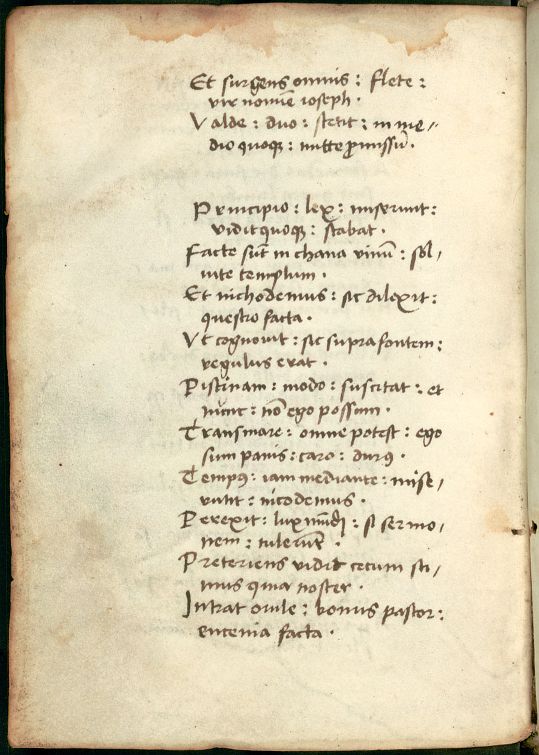 Et surgens omnis : flete :
vir nomīe ioseph .
Valde : duo : stetit : in me/
dio quoqꝫ : mitte ꝓmissū .
Principio : lex : miserunt :
vidit quoqꝫ : stabat .
Facte sūt in chana vinū : sol/
uite templum .
Et nichodemus : sic dilexit :
questio facta .
Vt cognouit : sic supra fontem :
regulus erat .
Piscinam : modo : suscitat : et
nunc : nō ego possum .
Transmare : omne potest : ego
sum panis : caro : durꝰ .
Tempꝰ : iam mediante : mise/
runt : nicodemus .
Perexit : lux mūdi : si sermo/
nem : tulerūt .
Preteriens vidit cecum sci/
mus quia noster .
Intrat ouile : bonus pastor :
encenia facta .